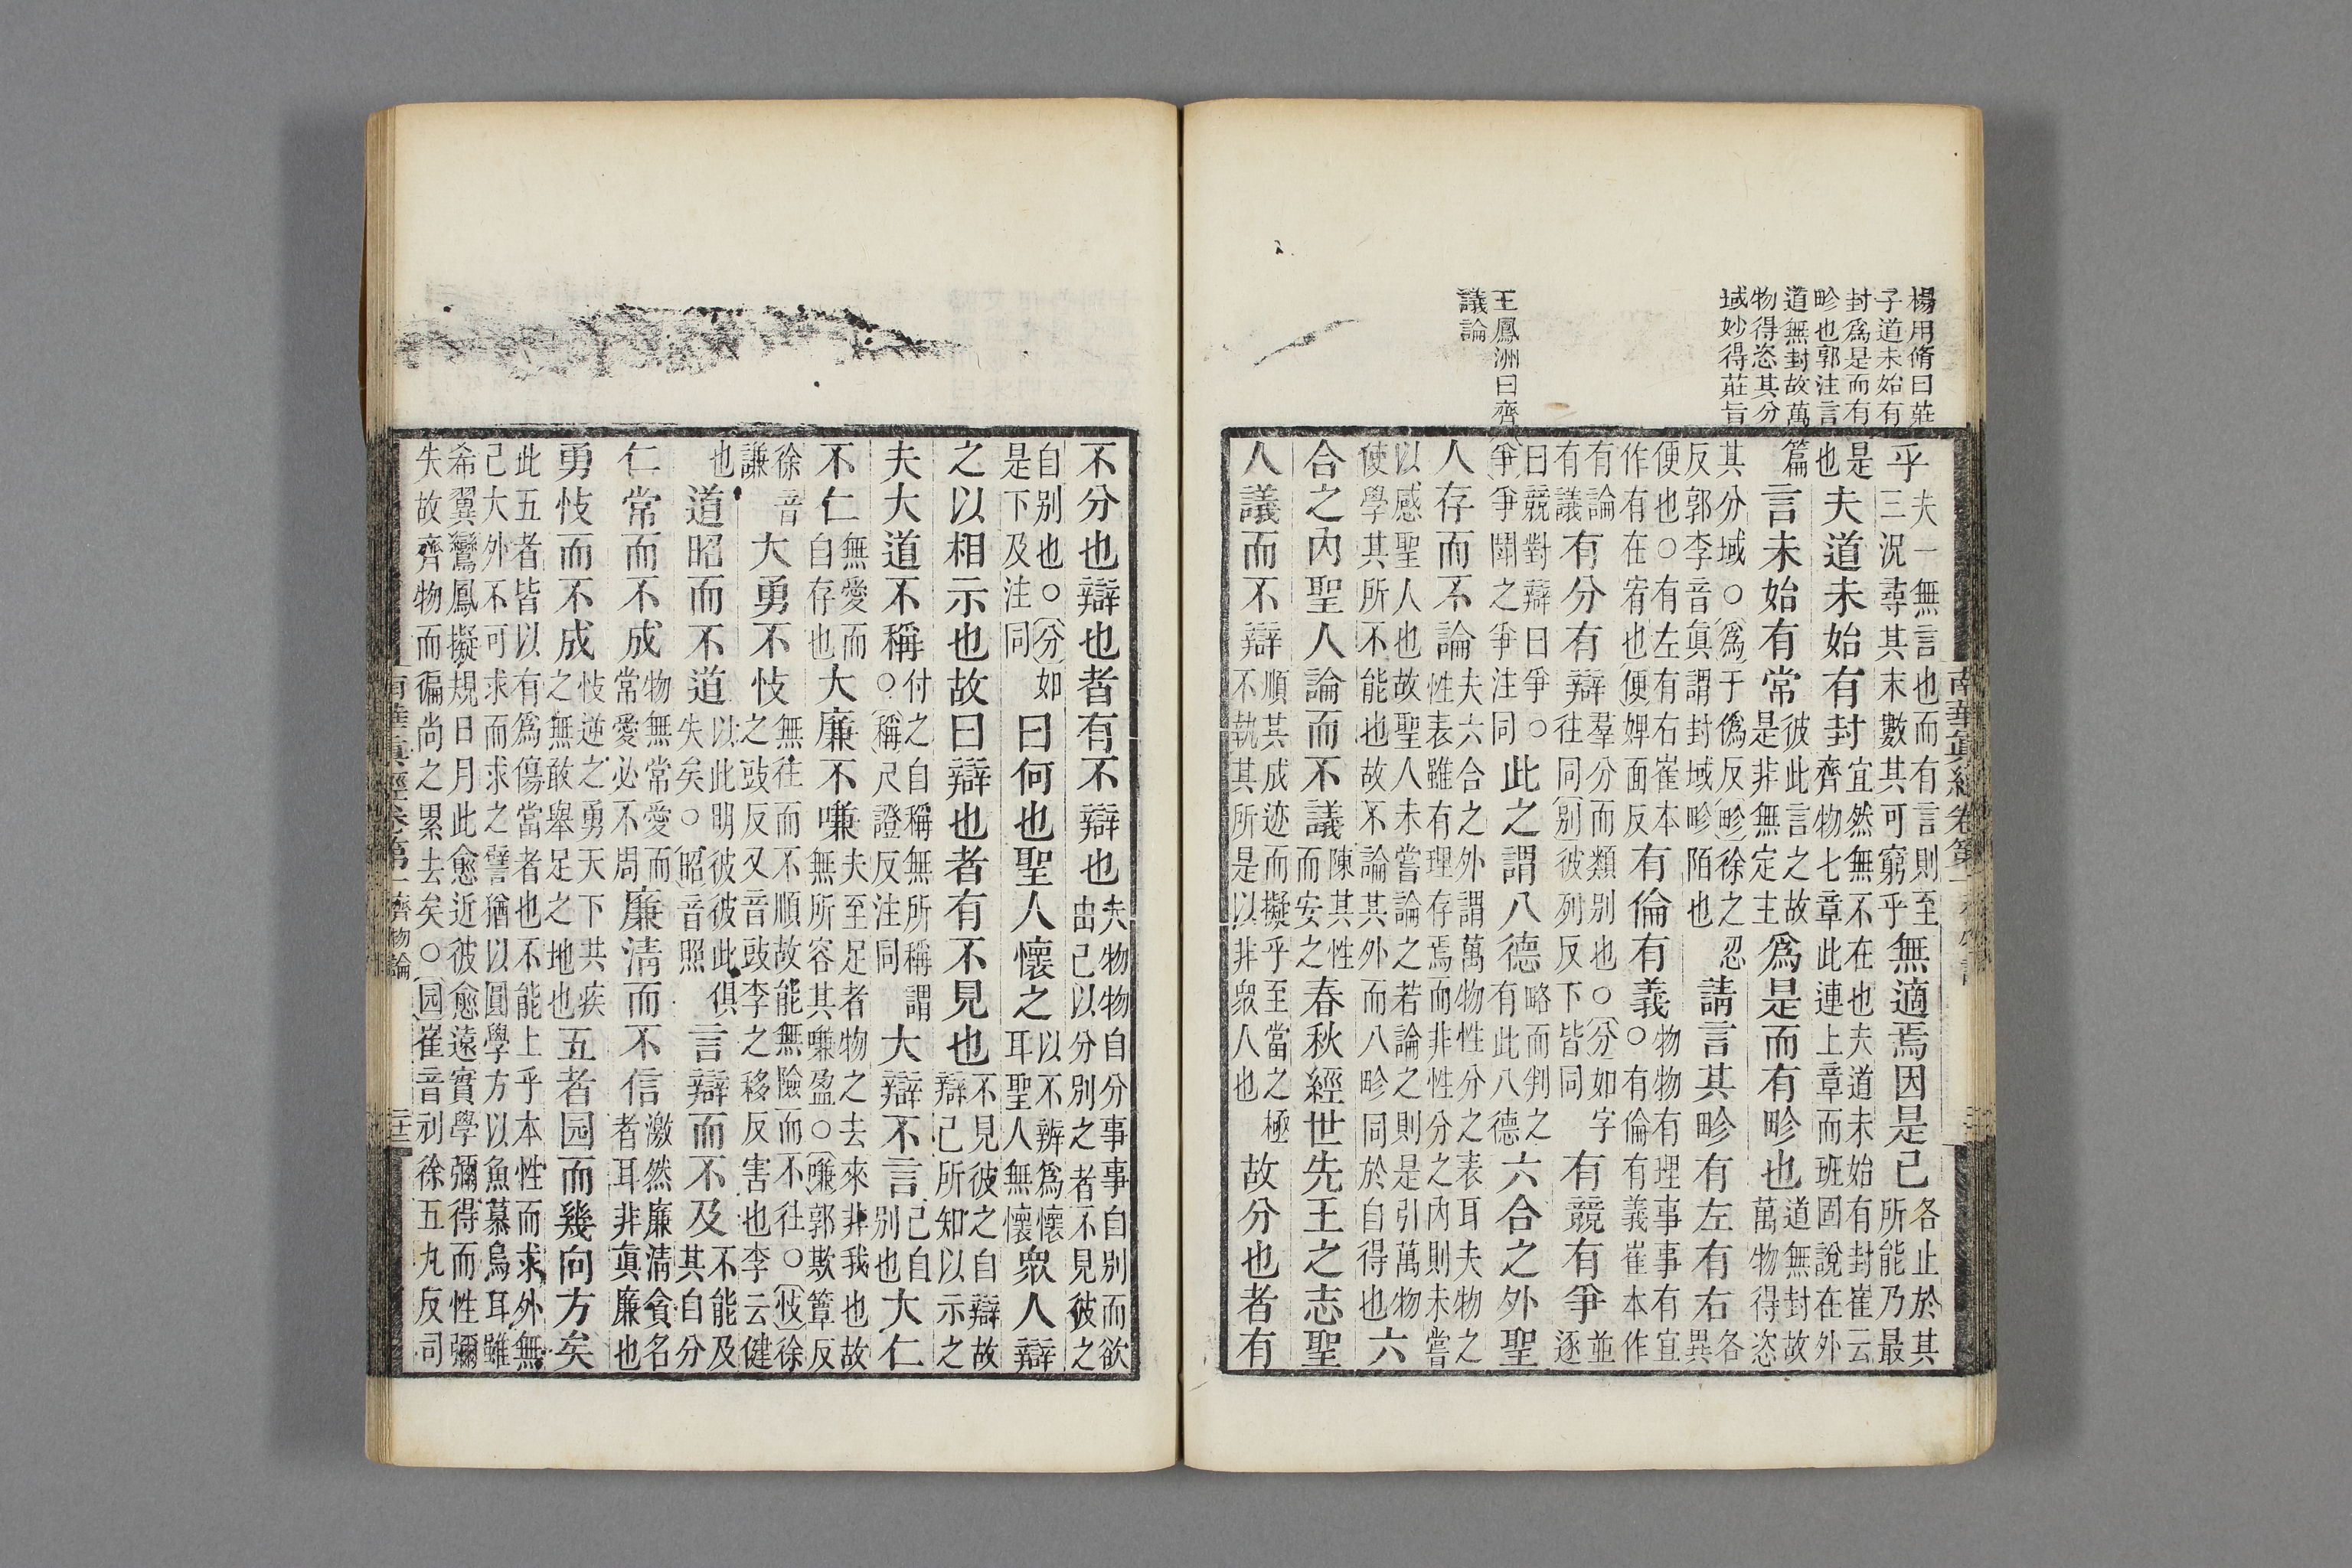 楊用脩曰莊
子道未始有
封爲是而有
畛也郭注言
道無封故萬
物得恣其分
域妙得莊旨
王鳳洲曰齊
議論
南華眞經卷第一
乎夫一無言也而有言則至三況尋其末數其可窮乎無適焉因是已各止於其所能乃最
是也夫道未始有封宜然無不在也夫道未始有封崔云齊物七章此連上章而班固說在外
篇言未始有常彼此言之故是非無定主爲是而有畛也道無封故萬物得恣
其分域○爲于僞反畛徐之忍反郭李音眞謂封域畛陌也請言其畛有左有右各異
便也○有左有右崔本作有在宥也便婢面反有倫有義物物有理事事有宜○有倫有義崔本作
有論有議有分有辯羣分而類別也○分如字往同別彼列反下皆同有競有爭並逐
曰競對辯曰爭○爭爭鬪之爭注同此之謂八德略而判之有此八德六合之外聖
人存而不論夫六合之外謂萬物性分之表耳夫物之性表雖有理存焉而非性分之內則未嘗
以感聖人也故聖人未嘗論之若論之則是引萬物使學其所不能也故不論其外而八畛同於自得也六
合之內聖人論而不議陳其性而安之春秋經世先王之志聖
人議而不辯順其成迹而擬乎至當之極不執其所是以非衆人也故分也者有
不分也辯也者有不辯也夫物物自分事事自別而欲由己以分別之者不見彼之
自別也○分如是下及注同曰何也聖人懷之以不辨爲懷耳聖人無懷衆人辯
之以相示也故曰辯也者有不見也不見彼之自辯故辯己所知以示之
夫大道不稱付之自稱無所稱謂○稱尺證反注同大辯不言己自別也大仁
不仁無愛而自存也大廉不嗛夫至足者物之去來非我也故無所容其嗛盈○嗛郭欺簟反
徐音謙大勇不忮無往而不順故能無險而不往○忮徐之豉反又音豉李之移反害也李云健
也道昭而不道以此明彼彼此俱失矣○昭音照言辯而不及不能及其自分
仁常而不成物無常愛而常愛必不周廉清而不信激然廉清貪名者耳非眞廉也
勇忮而不成忮逆之勇天下共疾之無敢舉足之地也五者园而幾向方矣
此五者皆以有爲傷當者也不能止乎本性而求外無已大外不可求而求之譬猶以圓學方以魚慕鳥耳雖
希翼鸞鳳擬規日月此愈近彼愈遠實學彌得而性彌失故齊物而徧尚之累去矣○园崔音刓徐五丸反司
南華眞經卷第一 齊物論